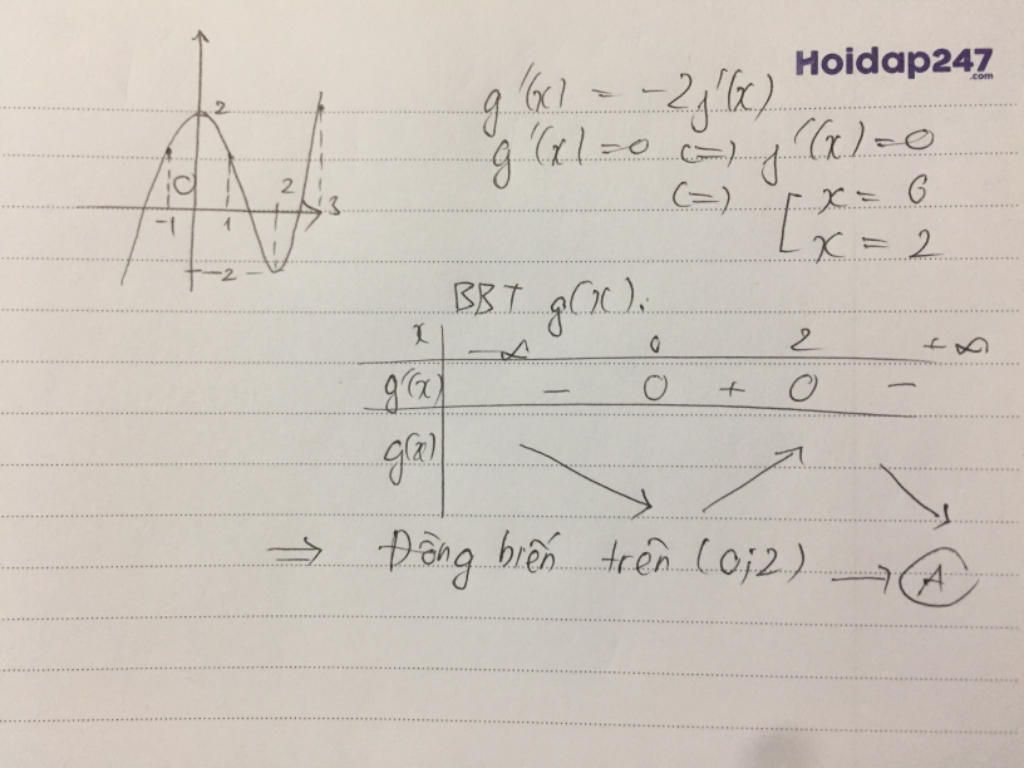 Hoidap247
.com
2
O
2
3
-1
1
-2
g'(x) = -2f'(x)
g'(x) = 0 (=) f'(x) = 0
(=) [ x = 0
x = 2
BBT g(x).
x -∞ 0 2 +∞
g'(x) - 0 + 0 -
g(x)
=> Đồng biến trên (0;2) → A